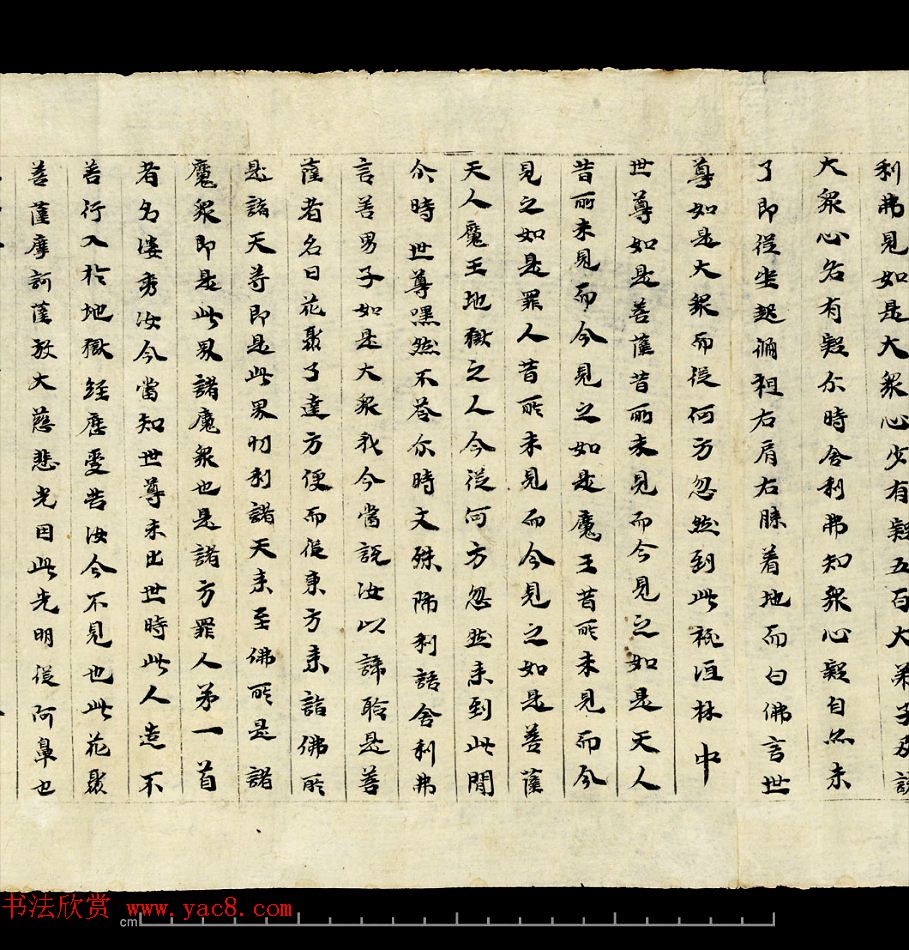 利弗見如是大衆心少有疑五百大弟子及
大衆心各有疑尒時舍利弗知衆心疑自亦未
了即從坐起徧袒右肩右膝着地而白佛言世
尊如是大衆而從何方忽然到此祇洹林中
世尊如是菩薩昔所未見而今見之如是天人
昔所未見而今見之如是魔王昔所未見而今
見之如是罪人昔所未見而今見之如是菩薩
天人魔王地獄之人今從何方忽然来到此間
尒時世尊嘿然不荅尒時文殊師利語舍利弗
言善男子如是大衆我今當說汝以諦聆是菩
薩者名曰花聚了達方便而從東方来詣佛所
是諸天等即是此界忉利諸天来至佛所是諸
魔衆即是此界諸魔衆也是諸方罪人第一首
者名婆秀汝今當知世尊未出世時此人造不
善行入於地獄經歷受苦汝今不見也此花聚
菩薩摩訶薩放大慈悲光因此光明從阿鼻也
书法欣赏 www.yac8.com
cm